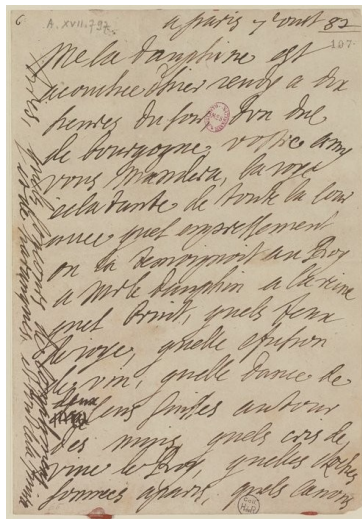 6
A. XVII. 797.
a paris 7 aout 82
197
Me la dauphine est
acouchee hier a dix
heures du soir d'un duc
de bourgogne, vostre amy
vous mandera, la joye
eclatante de toute la cour
avec quel empressement
on la temoignoit au Roy
a Mr le dauphin a la reine
quel bruit, quels feux
de joye, quelle efusion
de vin, quelle dance de
autour
des muis, quels cris de
vive le Roy, quelles cloches
sonnees a paris, quels canons
tires, quels concours de
et de harangues, et tout cela finira